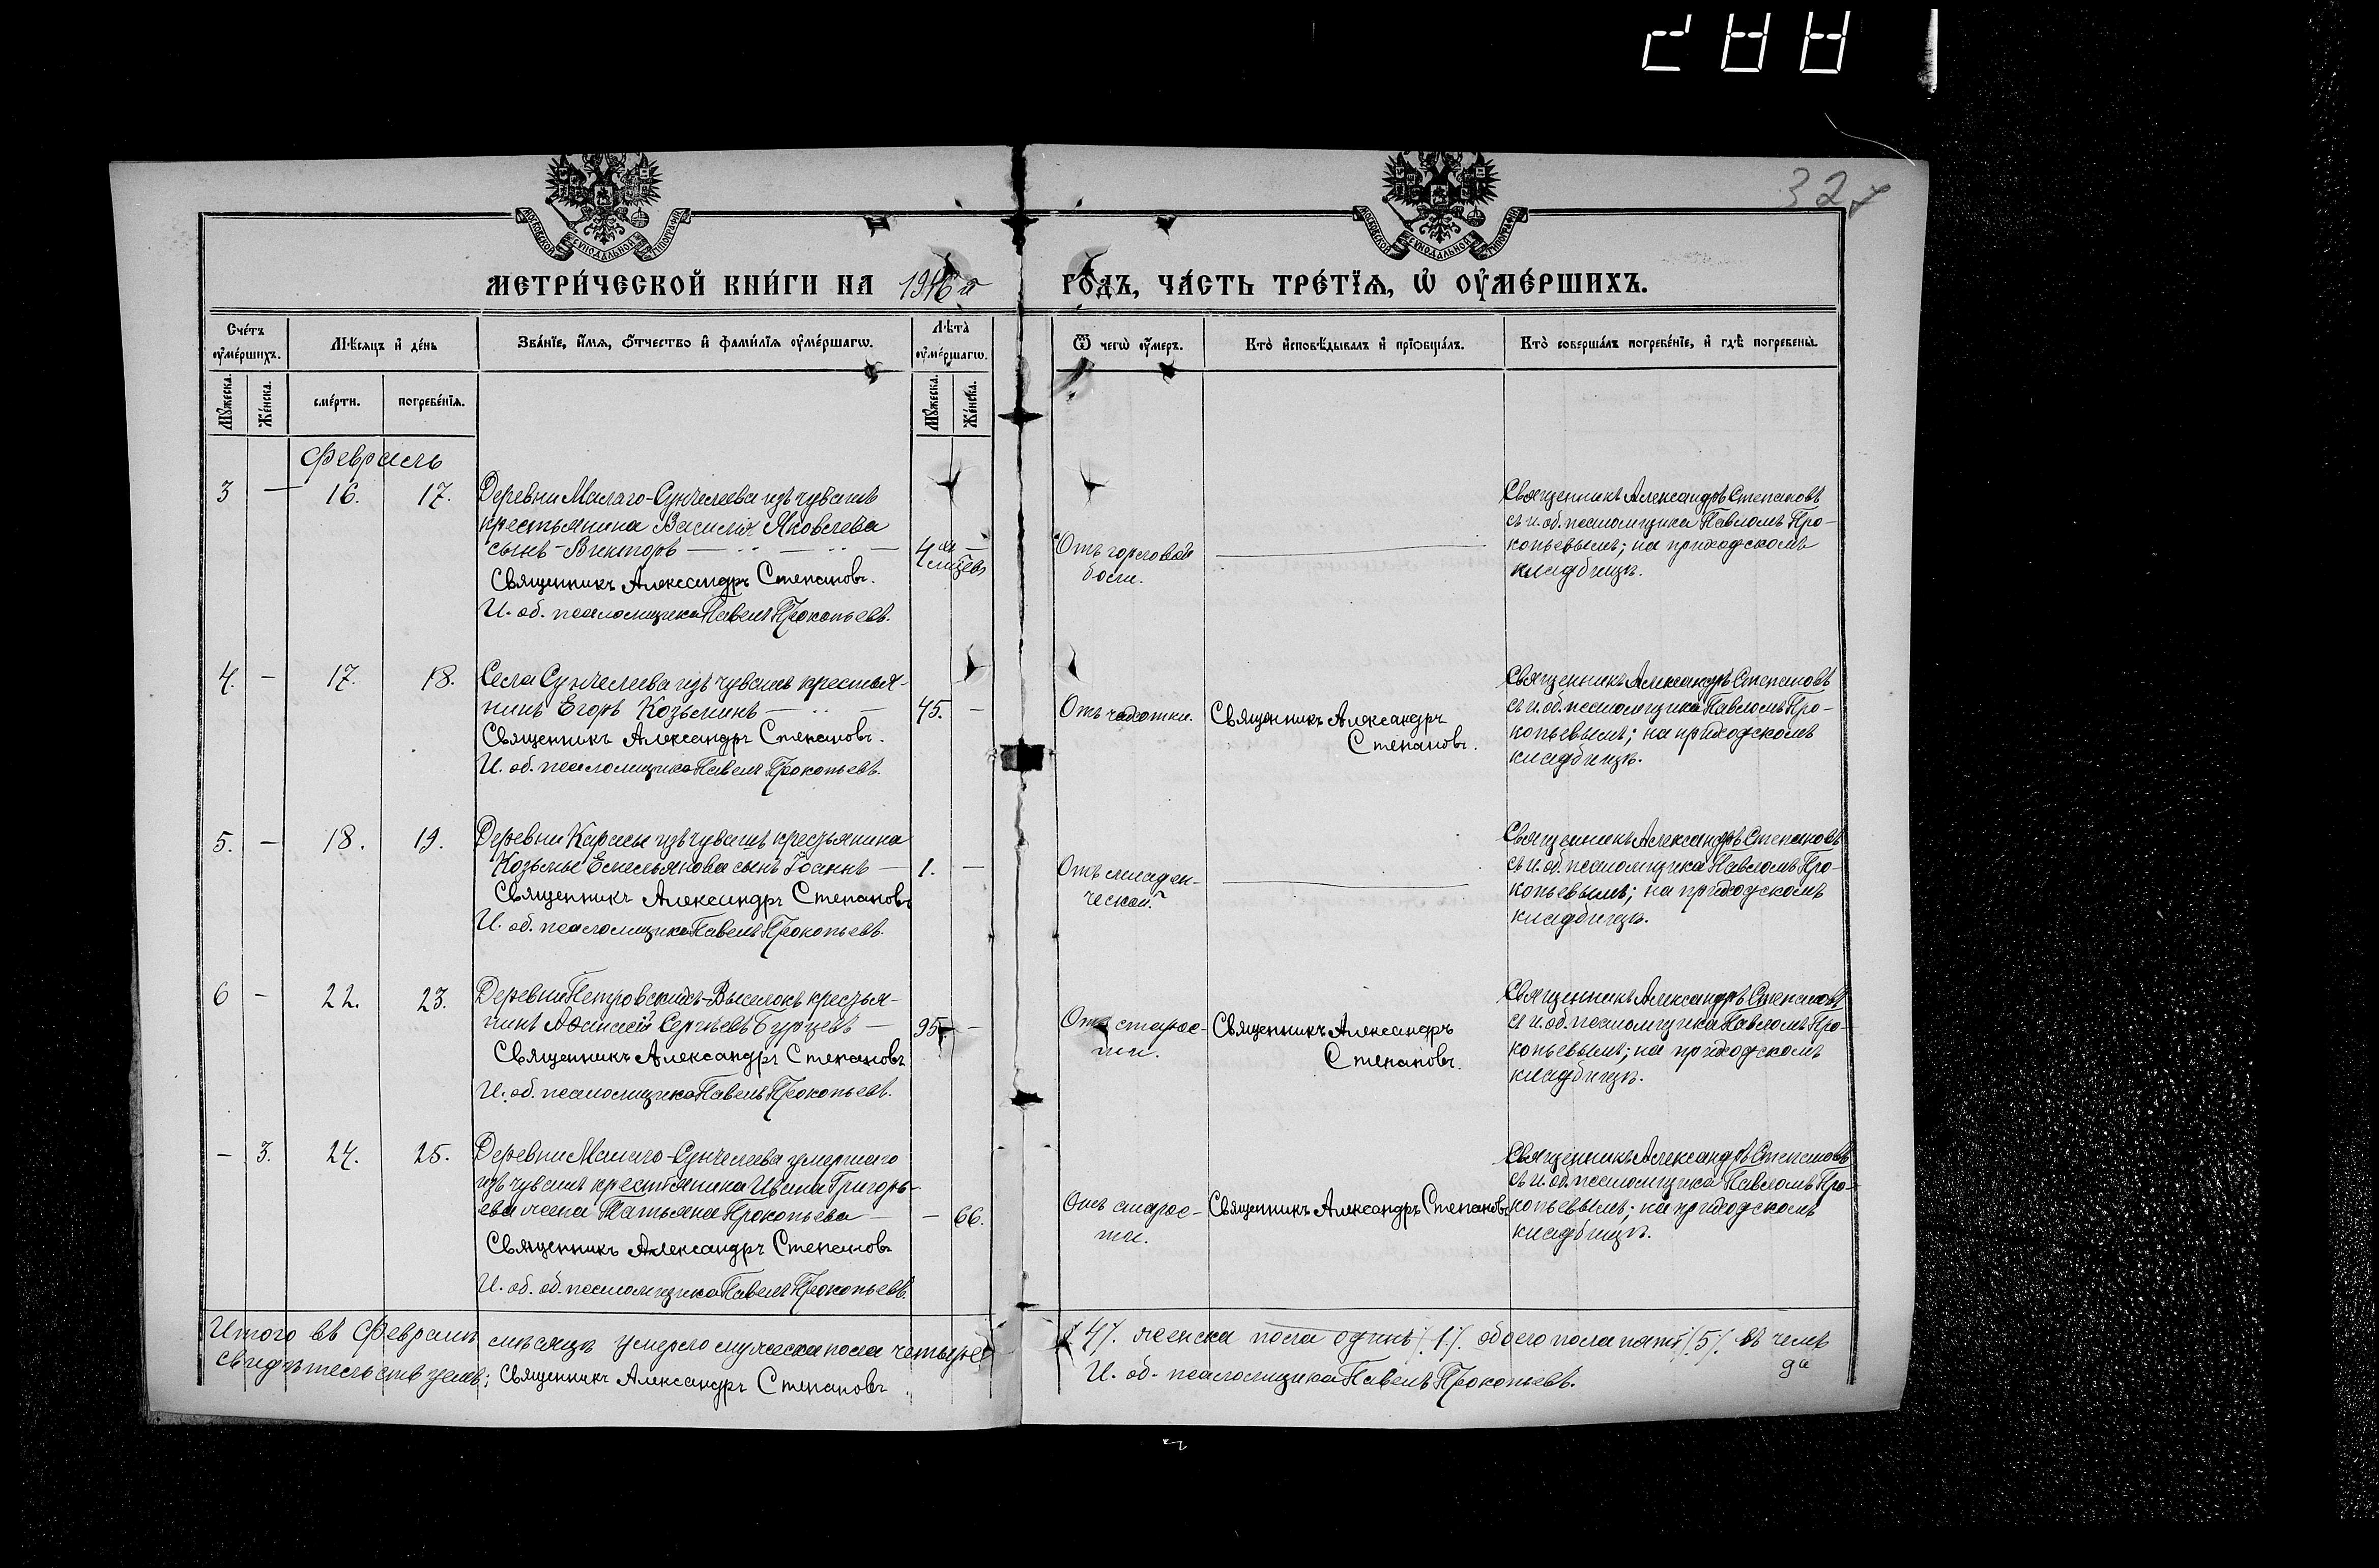 32
МОСКОВСКОЙ СѴНОДАЛЬНОЙ ТИПОГРАФІИ
МОСКОВСКОЙ СѴНОДАЛЬНОЙ ТИПОГРАФІИ
МЕТРИ́ЧЕСКОЙ КНИ́ГИ НА 1916й ГО́ДЪ, ЧА́СТЬ ТРЕ́ТЇѦ, Ѡ҆ ОУ҆МЕ́РШИХЪ.
Сче́тъ оу҆ме́ршихъ.
Мѣ́сяцъ и҆ де́нь
Зва́нїе, и҆́мѧ, ѻ҆́тчество и҆ фами́лїѧ оу҆ме́ршагѡ.
Лѣта̀ оу҆ме́ршагѡ.
Ѿ чегѡ̀ оу҆́меръ.
Кто̀ и҆сповѣ́дывалъ и҆ прїѡбща́лъ.
Кто̀ соверша́лъ погребе́нїе, и҆ гдѣ̀ погребены̀.
Мꙋ́жеска.
Же́нска.
сме́рти.
погребе́нїѧ.
Мꙋ́жеска.
Же́нска.
Февраль
3 — 16. 17.
Деревни Малаго-Сунчелеева изъ чувашъ
крестьянина Василія Яковлева
сынъ - Викторъ —
Священникъ Александръ Степановъ.
И. об. псаломщика Павелъ Прокопьевъ.
4
Отъ горловой
боли.
Священникъ Александръ Степановъ
съ и. об. псаломщика Павломъ Про-
копьевымъ; на приходскомъ
кладбищѣ.
4. — 17. 18.
Села Сунчелеева изъ чувашъ крестья-
нинъ Егоръ Козьминъ —
Священникъ Александръ Степановъ.
И. об. псаломщика Павелъ Прокопьевъ.
45. —
Отъ чахотки.
Священникъ Александръ
Степановъ.
Священникъ Александръ Степановъ
съ и. об. псаломщика Павломъ Про-
копьевымъ; на приходскомъ
кладбищѣ.
5. — 18. 19.
Деревни Карасы изъ чувашъ крестьянина
Козьмы Емельянова сынъ Іоаннъ —
Священникъ Александръ Степановъ
И. об. псаломщика Павелъ Прокопьевъ.
1. —
Отъ младен-
ческой.
Священникъ Александръ Степановъ
съ и. об. псаломщика Павломъ Про-
копьевымъ; на приходскомъ
кладбищѣ.
6 — 22. 23.
Деревни Петровскихъ-Выселокъ крестья-
нинъ Сергѣевъ Бурцевъ —
Священникъ Александръ Степановъ
И. об. псаломщика Павелъ Прокопьевъ.
95. —
Отъ старос-
ти.
Священникъ Александръ
Степановъ.
Священникъ Александръ Степановъ
съ и. об. псаломщика Павломъ Про-
копьевымъ; на приходскомъ
кладбищѣ.
— 3. 24. 25.
Деревни Малаго-Сунчелеева умершаго
изъ чувашъ крестьянина Ивана Григорь-
ева жена Татьяна Прокопьева —
Священникъ Александръ Степановъ
И. об. об. псаломщика Павелъ Прокопьевъ.
— 66.
Отъ старос-
ти.
Священникъ Александръ Степановъ
Священникъ Александръ Степановъ
съ и. об. псаломщика Павломъ Про-
копьевымъ; на приходскомъ
кладбищѣ.
Итого въ Февралѣ мѣсяцѣ умерло мужеска пола четыре /4/. женска пола одинъ /.1/. обоего пола пять /.5/. въ чемъ
свидѣтельствуемъ; Священникъ Александръ Степановъ
И. об. псаломщика Павелъ Прокопьевъ.